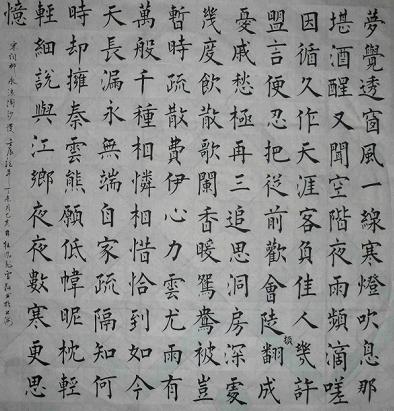 夢覺透窗風一線寒燈吹息那
堪酒醒又聞空階夜雨頻滴嗟
因循久作天涯客負佳人幾許
盟言便忍把從前歡會陡翻成
憂戚愁極再三追思洞房深處
幾度飲散歌闌香暖鴛鴦被豈
暫時疏散費伊心力雲尤雨有
萬般千種相憐相惜恰到如今
天長漏永無端自家疏隔知何
時却擁秦雲態願低幃昵枕輕
輕細說與江鄉夜夜數寒更思
憶
宋詞柳永浪淘沙慢壬辰龍年